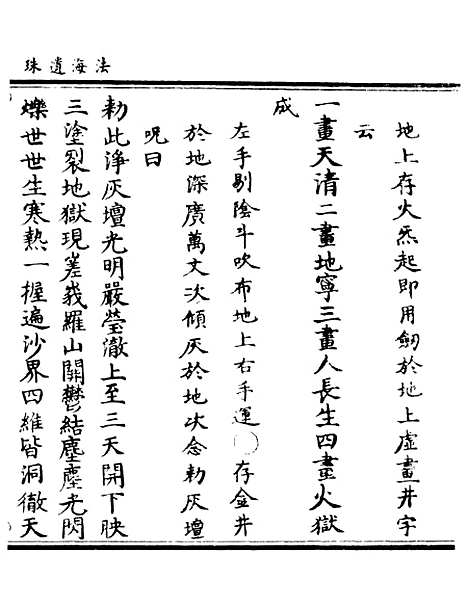 法海遺珠
地上存火炁起即用劒於地上虛畫井字
云
一畫天清二畫地寧三畫人長生四畫火獄
成
左手剔陰斗吹布地上右手運〇存金井
於地深廣萬丈次傾灰於地次念勅灰壇
呪曰
勅此淨灰壇光明嚴瑩澈上至三天開下映
三塗裂地獄現峩羅山開鬱結塵塵光閃
爍世世生寒熱一握遍沙界四維皆洞徹天